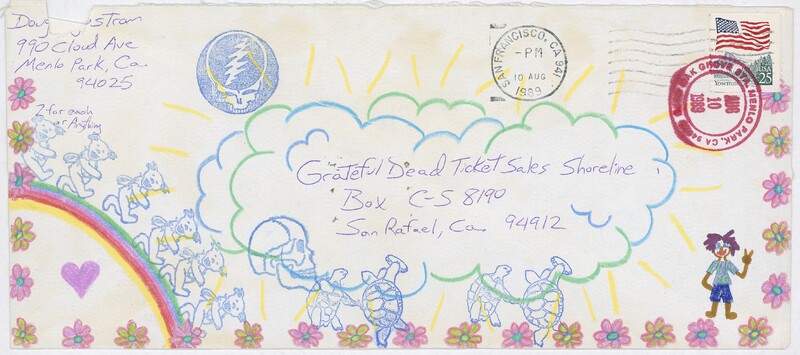 Doug
990 Cloud Ave
Menlo Park, Ca.
94025
2 for each
or Anything
SAN FRANCISCO, CA 941
-PM
10 AUG
1989
USA
25
Yosemite
OAK GROVE STA. MENLO PARK, CA
AUG
10
1989
Grateful Dead Ticket Sales Shoreline
Box C-S 8190
San Rafael, Ca. 94912